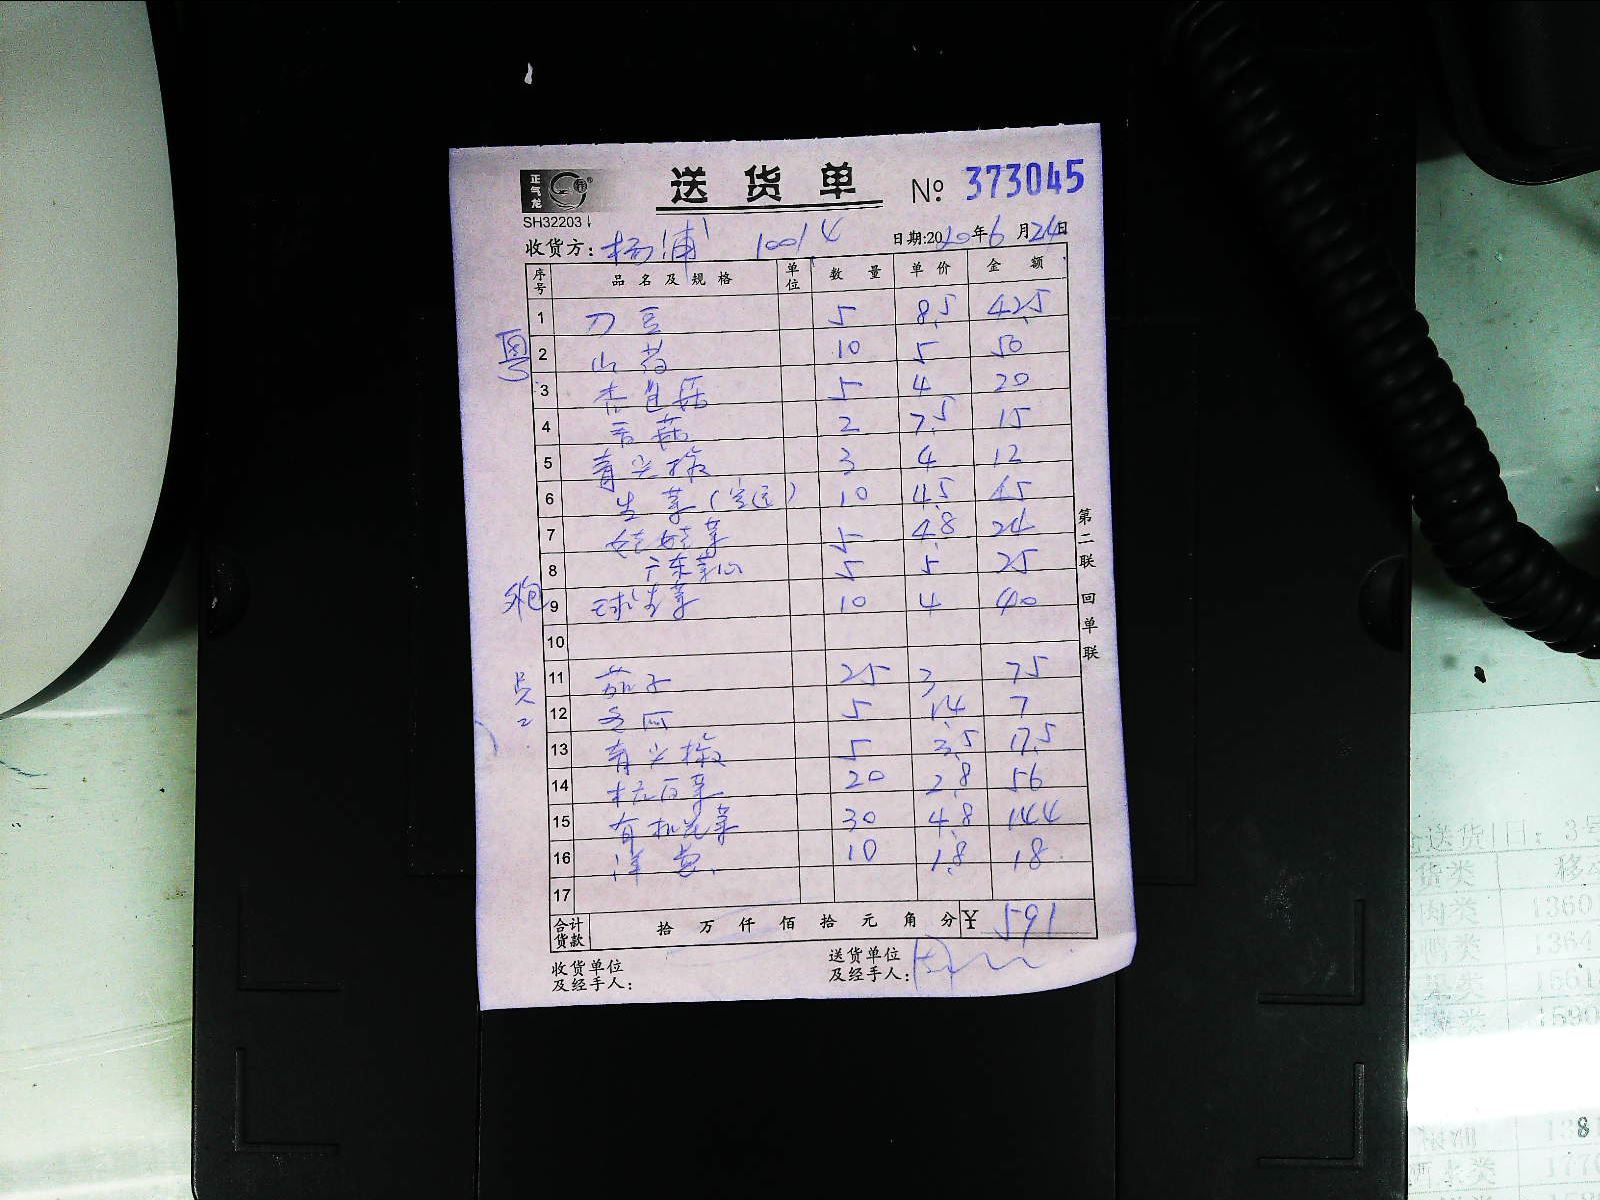 正气龙
SH32203
送货单 № 373045
收货方: 杨浦 10014 日期:2020年6月24日
序号 品名及规格 单位 数量 单价 金额
粤
1 刀豆 5 8.5 42.5
2 山药 10 5 50
3 杏鲍菇 5 4 20
4 香菇 2 7.5 15
5 青尖椒 3 4 12
6 生菜 10 4.5 45
7 娃娃菜 5 4.8 24
8 广东菜心 5 5 25
9 球生菜 10 4 40
10
员工
11 茄子 25 3 75
12 冬瓜 5 1.4 7
13 青尖椒 5 3.5 17.5
14 杭白菜 20 2.8 56
15 有机花菜 30 4.8 144
16 洋葱 10 1.8 18
17
合计货款 拾 万 仟 佰 拾 元 角 分 ¥ 591
收货单位及经手人:
送货单位及经手人:
第二联 回单联
送货 日: 3号
肉类 1360
364
1561
1590